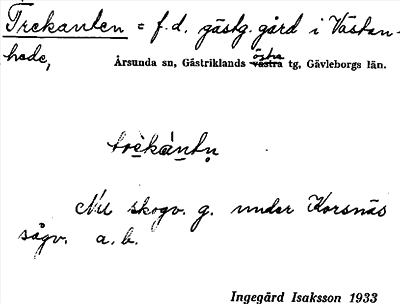 Trekanten = f. d. gästg. gård i Västan-
hede,
östra
Årsunda sn, Gästriklands västra tg, Gävleborgs län.
trekántn
Nu skogv. g. under Korsnäs
sågv. a. b.
Ingegärd Isaksson 1933